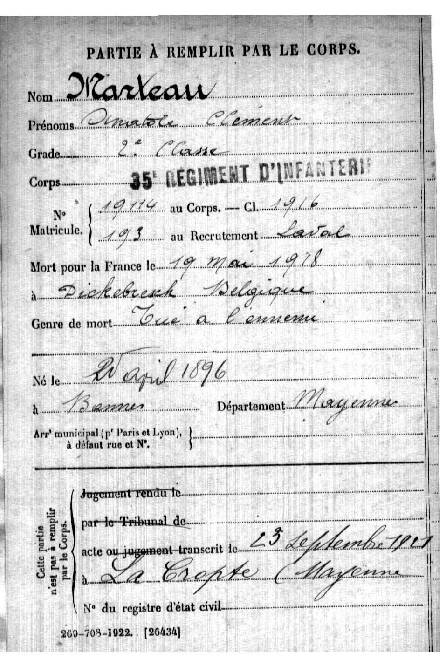 PARTIE À REMPLIR PAR LE CORPS.
Nom Marteau
Prénoms Anatole Clément
Grade 2e Classe
Corps 35e RÉGIMENT D'INFANTERIE
No Matricule. 19114 au Corps. — Cl. 1916
193 au Recrutement Laval
Mort pour la France le 19 mai 1918
à Dickebusch Belgique
Genre de mort Tué à l'ennemi
Né le avril 1896
à Bannes Département Mayenne
Arrt municipal (pr Paris et Lyon), à défaut rue et No.
Cette partie n'est pas à remplir par le Corps.
Jugement rendu le
par le Tribunal de
acte ou jugement transcrit le 23 septembre 1921
à La Cropte (Mayenne
No du registre d'état civil
269-708-1922. [26434]